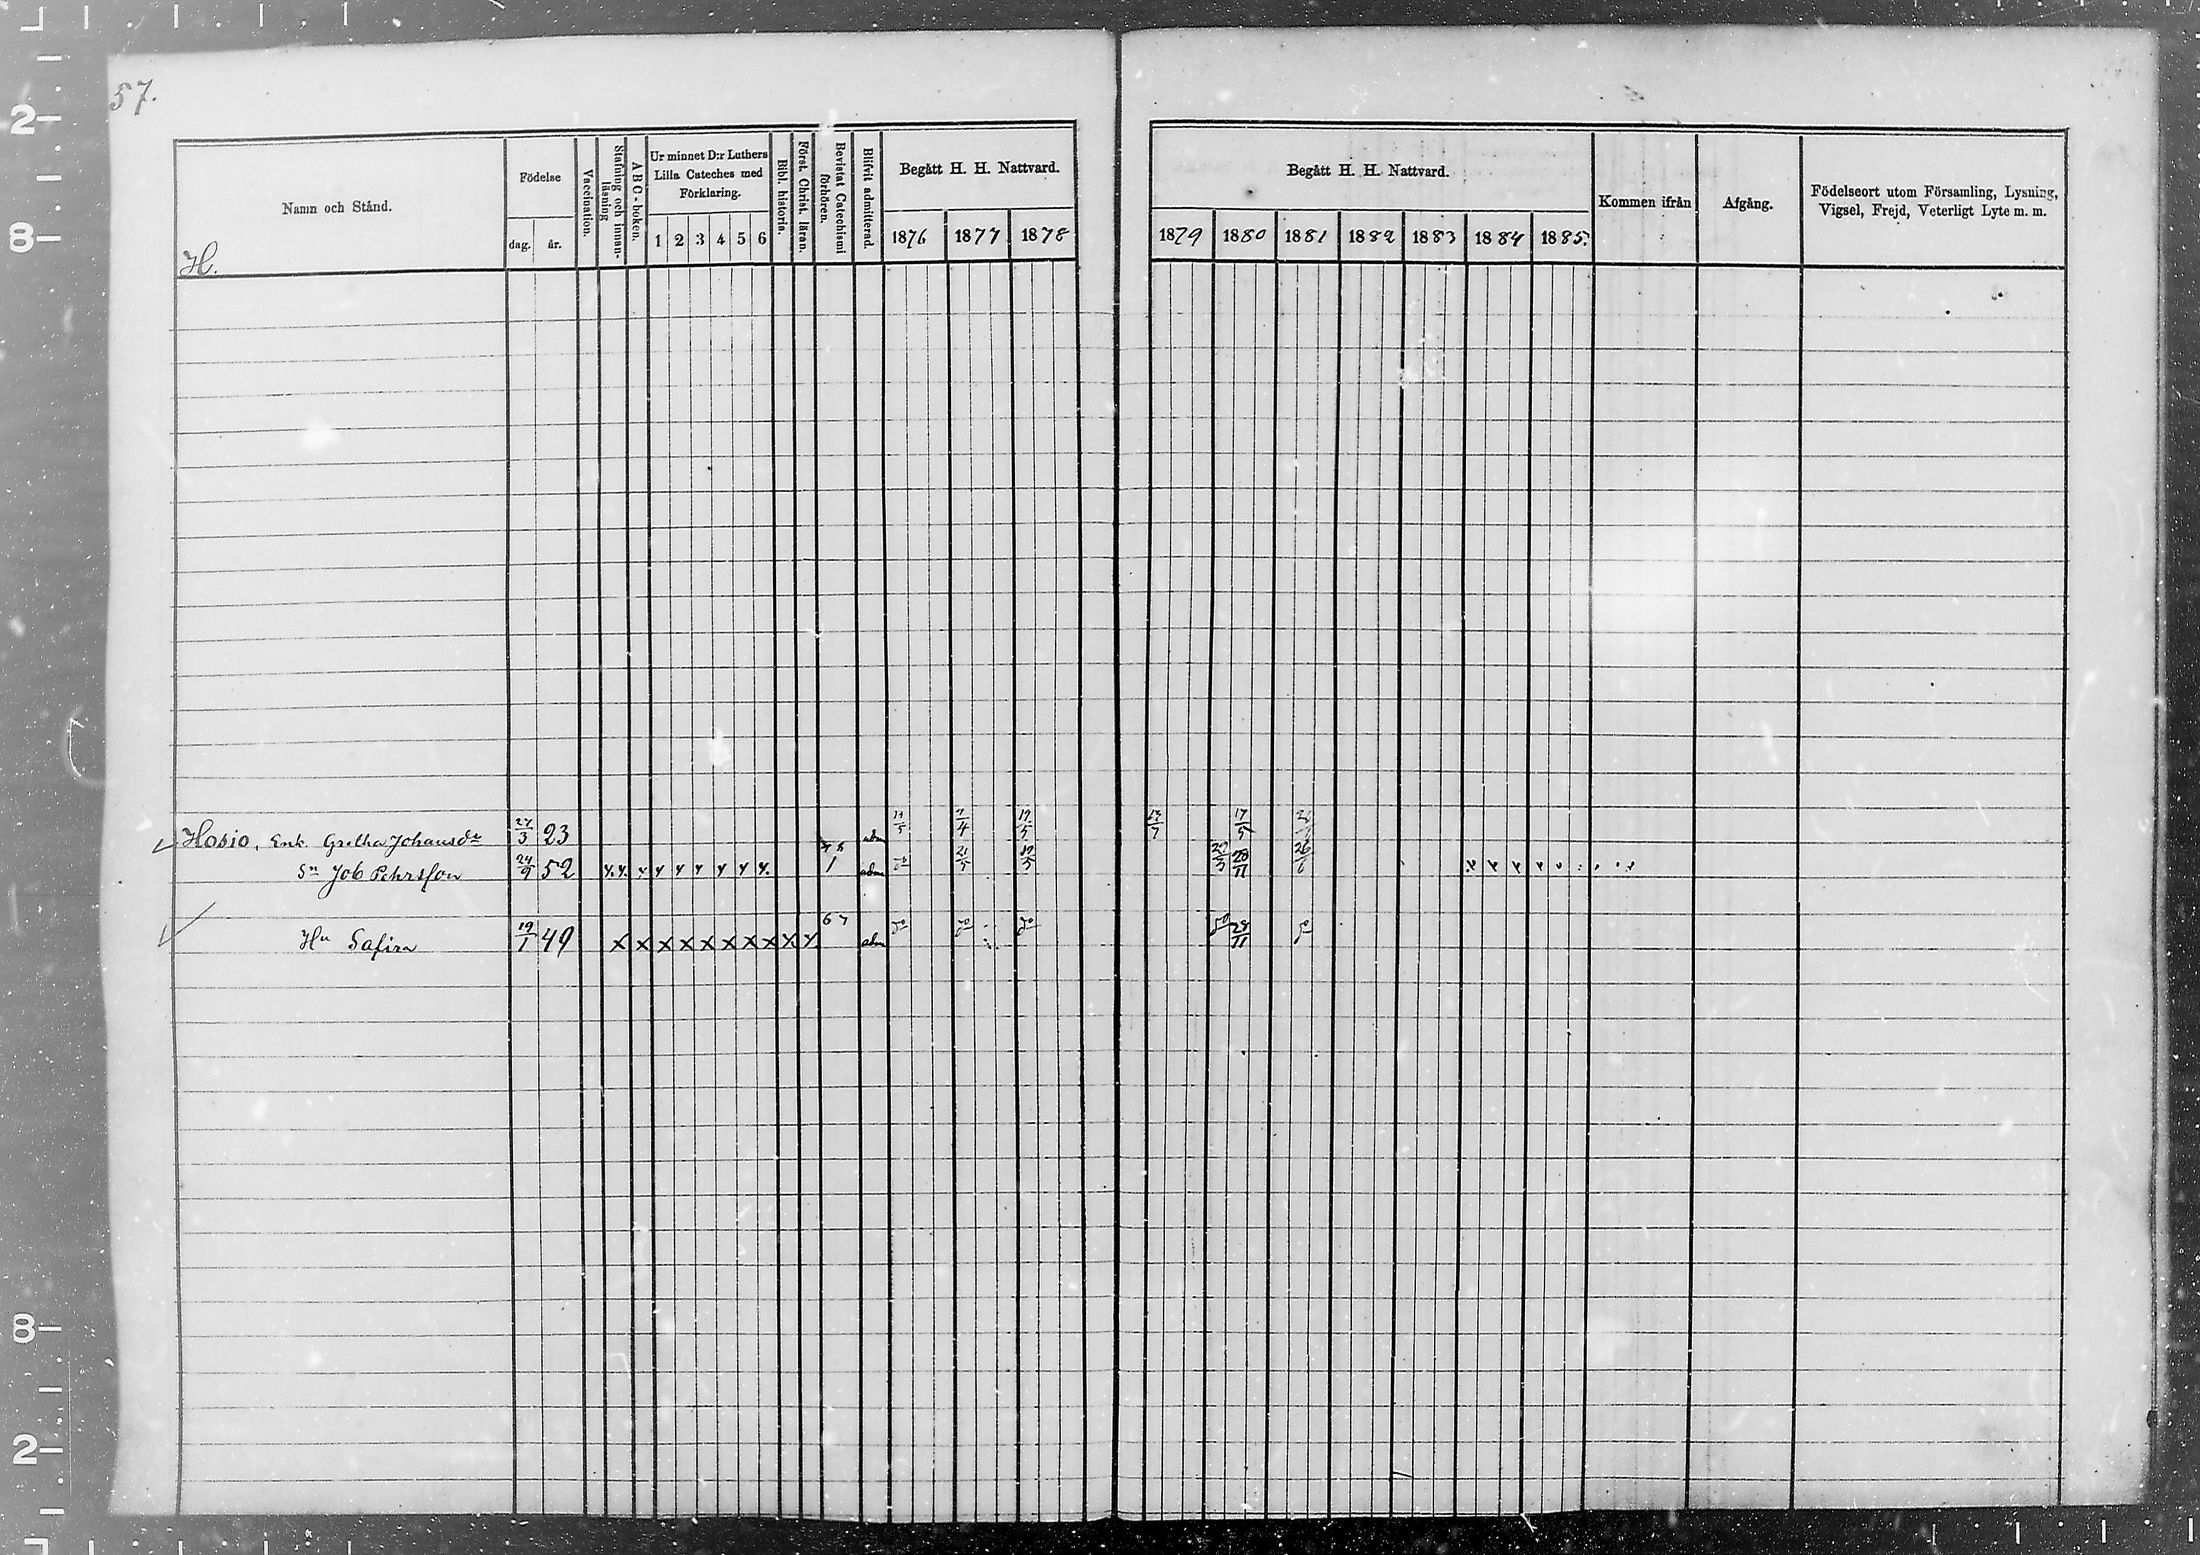 57.
Namn och Stånd.
H.
Födelse
dag. år.
Vaccination.
Stafning och innan-
läsning
A B C - boken.
Ur minnet D:r Luthers
Lilla Cateches med
Förklaring.
1 2 3 4 5 6
Bibl. historia.
Först. Christ. läran.
Bevistat Catechismi
förhören.
Blifvit admitterad.
Begått H. H. Nattvard.
1876 1877 1878
Begått H. H. Nattvard.
1879 1880 1881 1882 1883 1884 1885.
Kommen ifrån
Afgång.
Födelseort utom Församling, Lysning,
Vigsel, Frejd, Veterligt Lyte m. m.
Hosio, Enk. Gretha Johansdr 27/3 23 adm 7/4 19/5 17/5
Sn Job Pehrsson 24/9 52 1 adm 21/5 19/5 29/3 28/11 26/6
Hu Safira 19/1 49 x x x x x x x x x x 67 adm do do do do 28/11